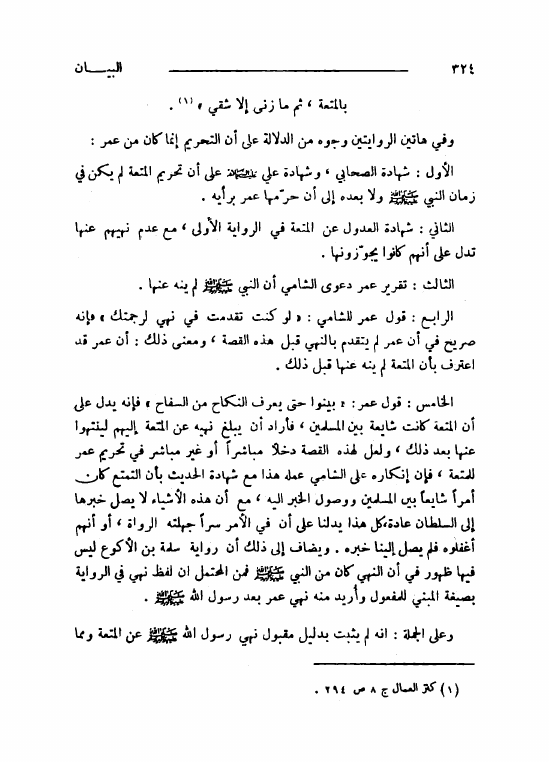 ٣٢٤ البيـــان
بالمتعة ، ثم ما زنى إلا شقي » (١) .
وفي هاتين الروايتين وجوه من الدلالة على أن التحريم إنما كان من عمر :
الأول : شهادة الصحابي ، وشهادة علي عليه السلام على أن تحريم المتعة لم يكن في
زمان النبي ﷺ ولا بعده إلى أن حرّمها عمر برأيه .
الثاني : شهادة العدول عن المتعة في الرواية الأولى ، مع عدم نهيهم عنها
تدل على أنهم كانوا يجوّزونها .
الثالث : تقرير عمر دعوى الشامي أن النبي ﷺ لم ينه عنها .
الرابع : قول عمر للشامي : « لو كنت تقدمت في نهي لرجمتك » فإنه
صريح في أن عمر لم يتقدم بالنهي قبل هذه القصة ، ومعنى ذلك : أن عمر قد
اعترف بأن المتعة لم ينه عنها قبل ذلك .
الخامس : قول عمر : « بينوا حتى يعرف النكاح من السفاح » فإنه يدل على
أن المتعة كانت شايعة بين المسلمين ، فأراد أن يبلغ نهيه عن المتعة إليهم لينتهوا
عنها بعد ذلك ، ولعل لهذه القصة دخلاً مباشراً أو غير مباشر في تحريم عمر
للمتعة ، فإن إنكاره على الشامي عمله هذا مع شهادة الحديث بأن التمتع كان
أمراً شايعاً بين المسلمين ووصول الخبر اليه ، مع أن هذه الأشياء لا يصل خبرها
إلى السلطان عادة، كل هذا يدلنا على أن في الأمر سراً جهلته الرواة ، أو أنهم
أغفلوه فلم يصل إلينا خبره . ويضاف إلى ذلك أن رواية سلمة بن الأكوع ليس
فيها ظهور في أن النهي كان من النبي ﷺ فمن المحتمل ان لفظ نهي في الرواية
بصيغة المبني للمفعول وأريد منه نهي عمر بعد رسول الله ﷺ .
وعلى الجملة : انه لم يثبت بدليل مقبول نهي رسول الله ﷺ عن المتعة ومما
(١) كنز العمال ج ٨ ص ٢٩٤ .